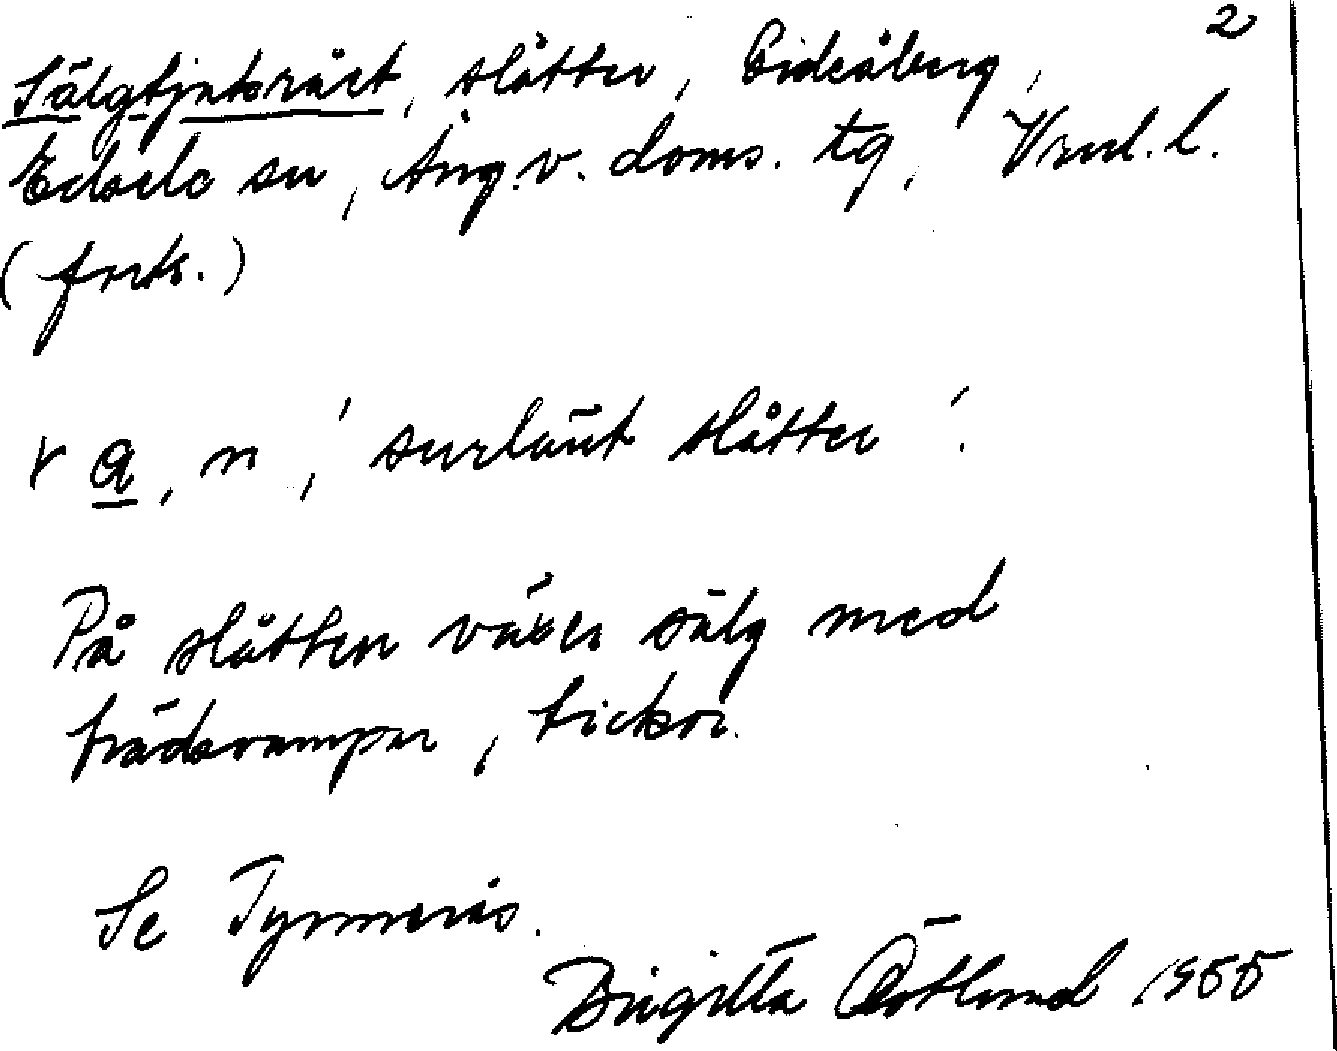 2
Sälgtjukrået, slåtter, Eideåberg,
Edsele sn, Ång. v. doms. tg, Vrnl. l.
(frtk.)
r a, n, 'surlänt slåtter'.
På slåtten växer sälg med
trädsvampar, tickor.
Se Tynnerås.
Birgitta Östlund 1955